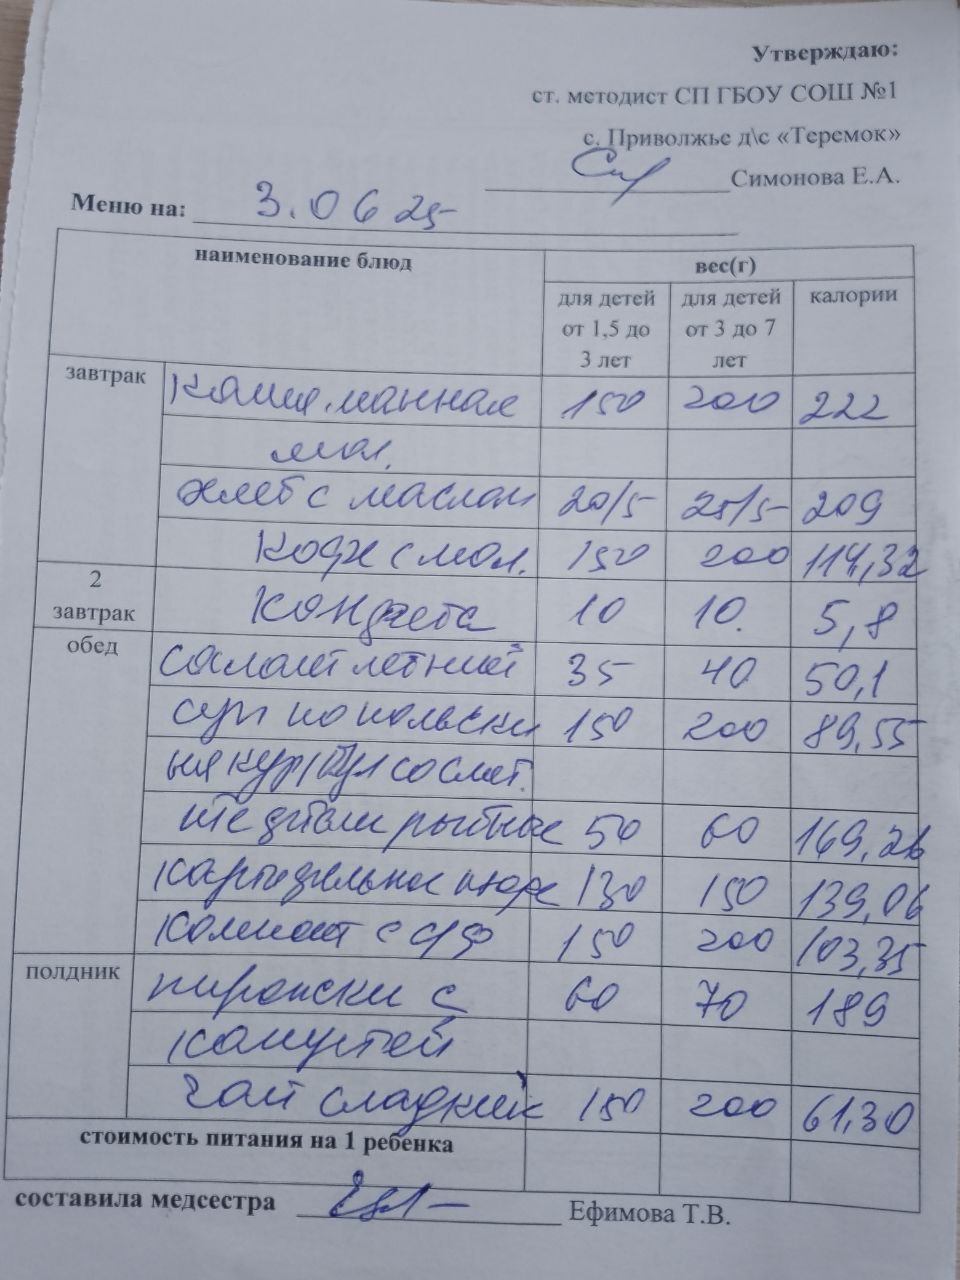 Утверждаю:
ст. методист СП ГБОУ СОШ №1
с. Приволжье д\с «Теремок»
Симонова Е.А.
Меню на: 3.06 25
наименование блюд вес(г)
для детей от 1,5 до 3 лет для детей от 3 до 7 лет калории
завтрак Каша манная 150 200 222
мол.
хлеб с маслом 20/5 25/5 209
Кофе с мол. 150 200 114,32
2 завтрак Конфета 10 10. 5,8
обед салат летний 35 40 50,1
суп по польски 150 200 89,55
на кур/бул со смет.
рыбные 50 60 169,26
картофельное пюре 130 150 139,06
Компот с с/ф 150 200 103,35
полдник пирожки с 60 70 189
капустой
чай сладкий 150 200 61,30
стоимость питания на 1 ребенка
составила медсестра Ефимова Т.В.